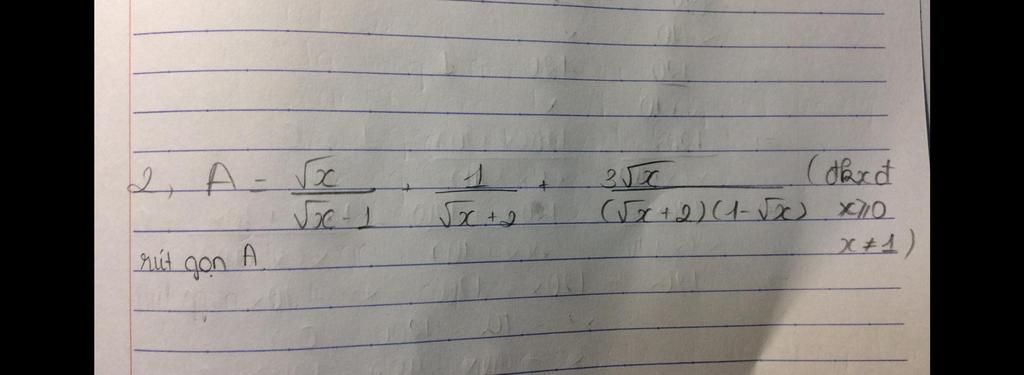 2, A = \frac{\sqrt{x}}{\sqrt{x}-1} + \frac{1}{\sqrt{x}+2} + \frac{3\sqrt{x}}{(\sqrt{x}+2)(1-\sqrt{x})} (đkxđ x⩾0 x≠1)
rút gọn A.